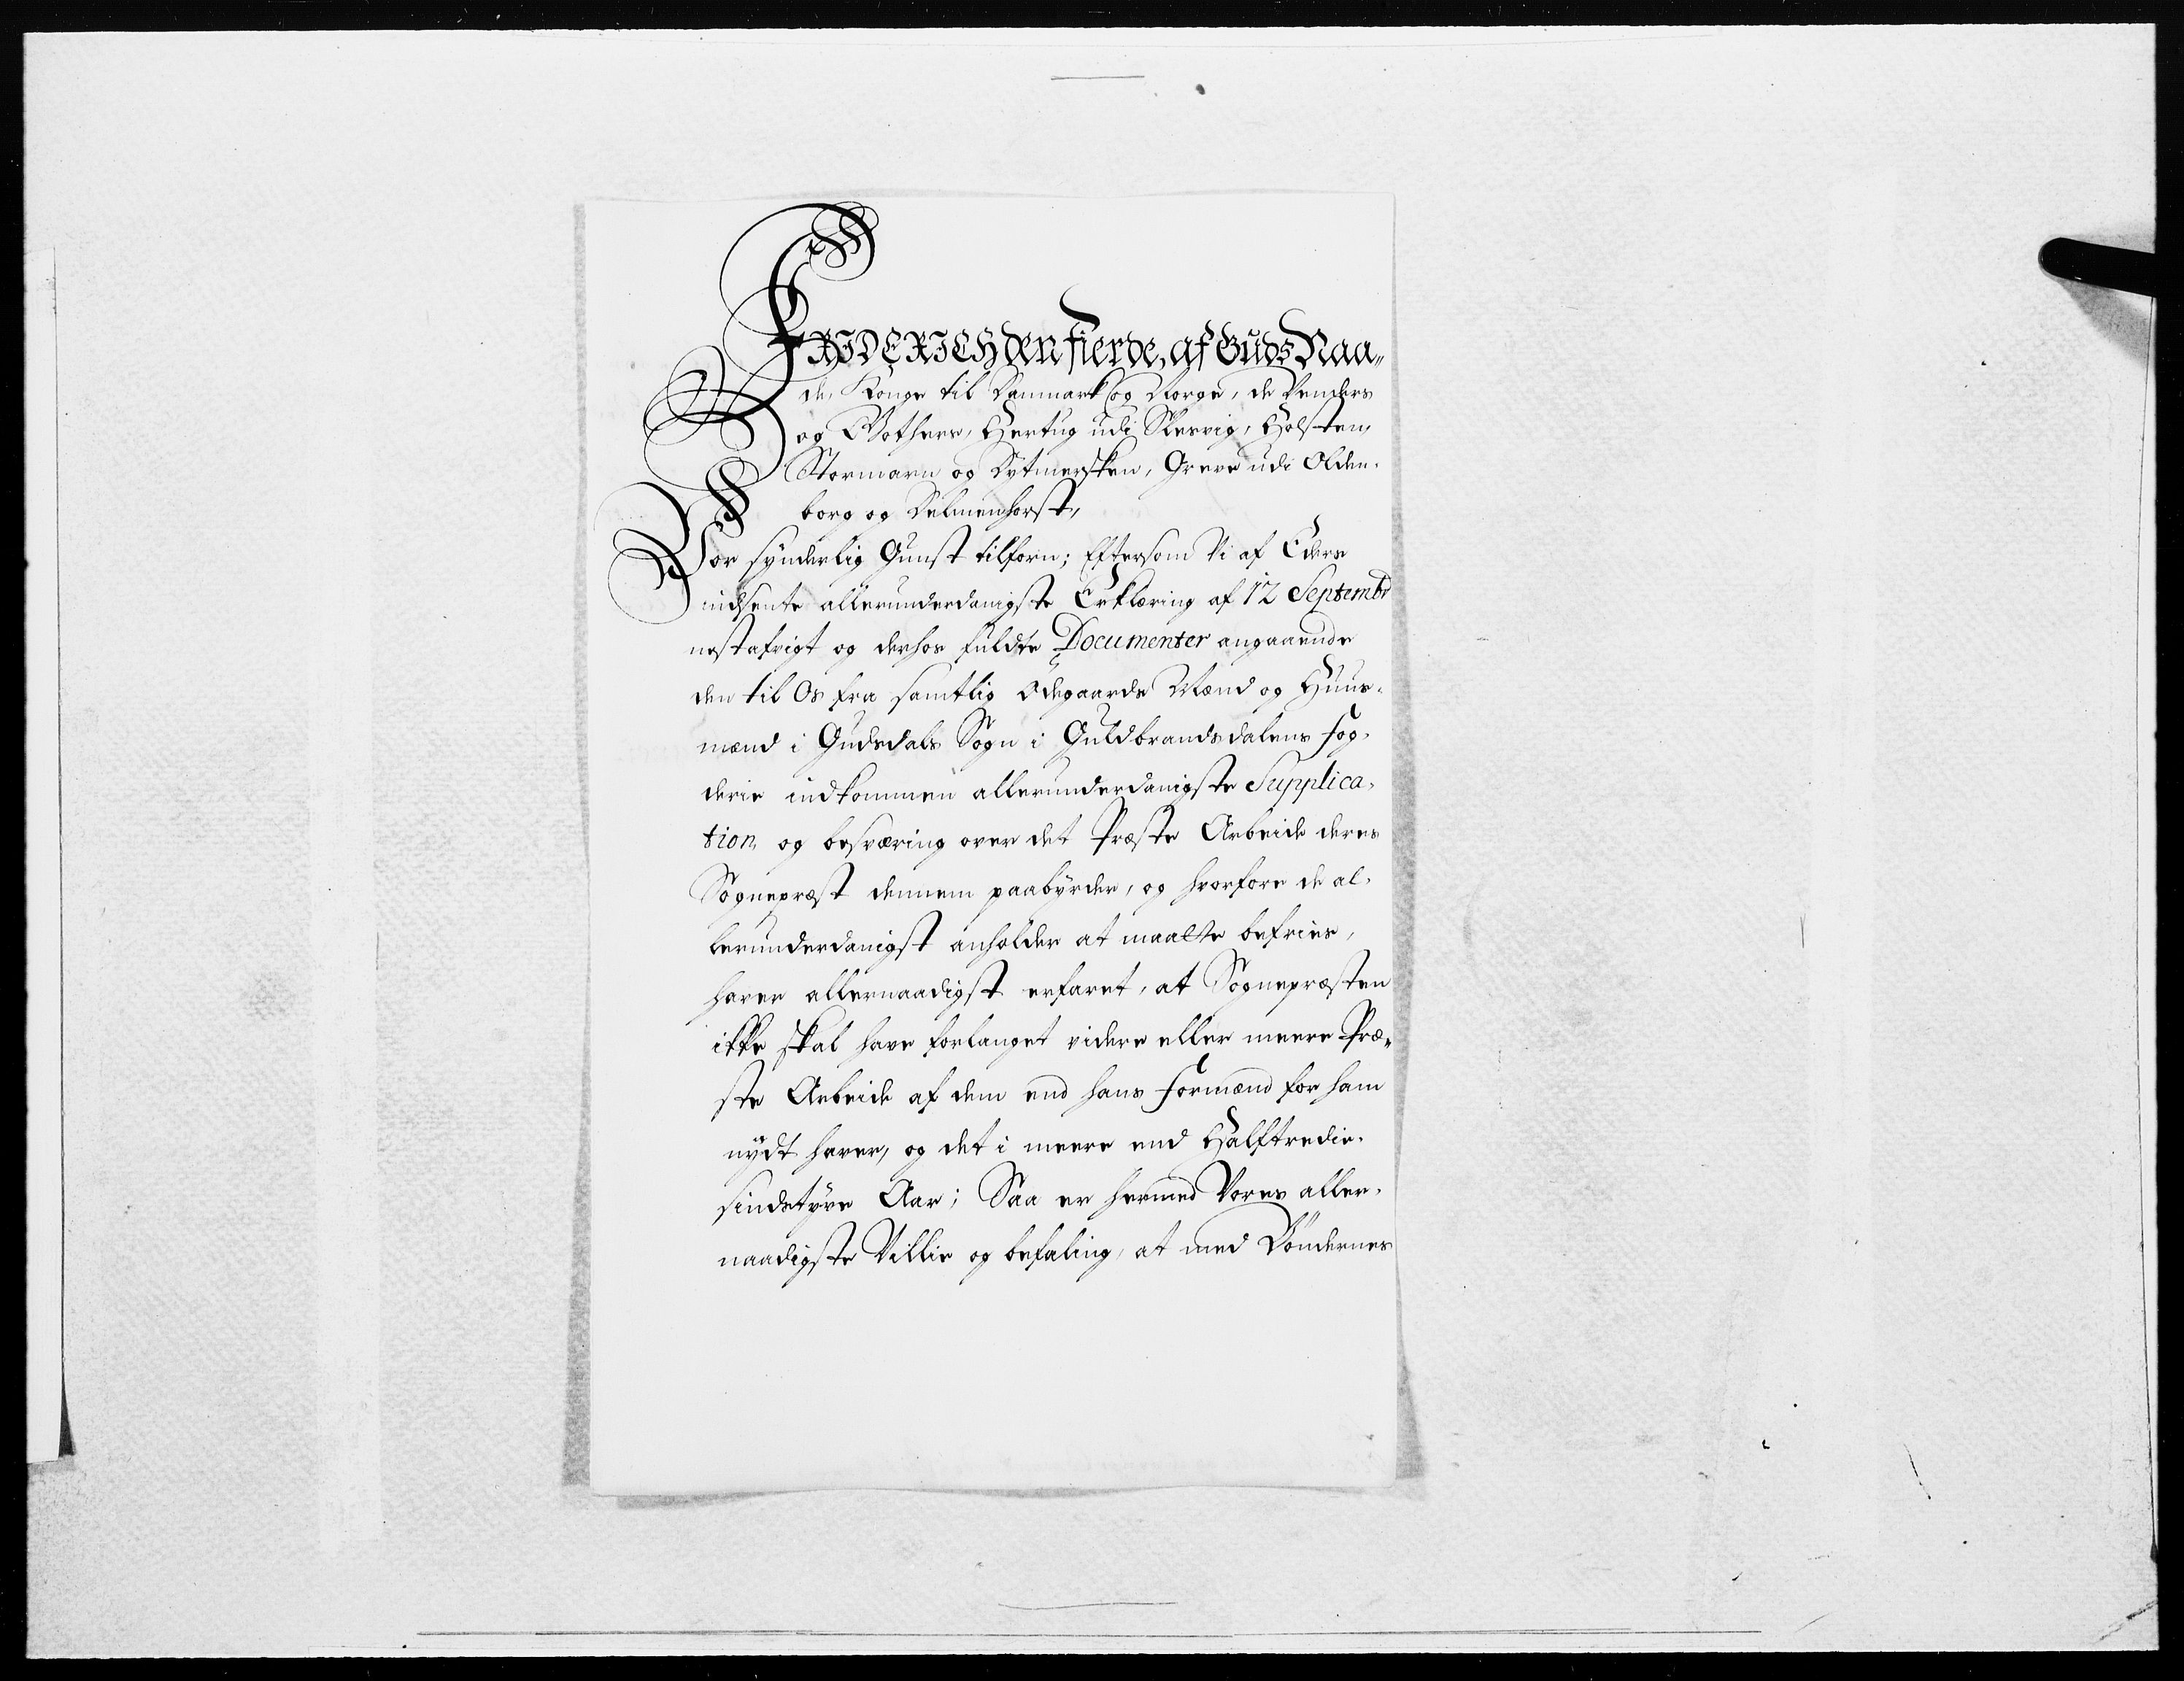 FRIDERICH den Fierde, af Guds Naa-
de, Konge til Danmark og Norge, de Venders
og Gothers, Hertug udi Slesvig, Holsten,
Stormarn og Dytmersken, Greve udi Olden-
borg og Delmenhorst,
Vor synderlig Gunst tilforn; Eftersom Vi af Eders
indsente allerunderdanigste Erklæring af 12 Septembr
nestafvigt og derhos fuldte Documenter angaaende
den til Os fra samtlig Ødegaards Mænd og Huus-
mænd i Gudsdals Sogn i Guldbrandsdalens Fog-
derie indkommen allerunderdanigste Supplica-
tion og besværing over det Præste Arbeide deres
Sognepræst dennem paabyrder, og hvorfore de al-
lerunderdanigst anholder at maatte befries,
haver allernaadigst erfaret, at Sognepræsten
ikke skal have forlanget videre eller meere Præ-
ste Arbeide af dem end hans Formænd for ham
nydt haver, og det i meere end Halftredie-
sindstyve Aar; Saa er hermed Vores aller-
naadigste Villie og befaling, at med Bøndernes